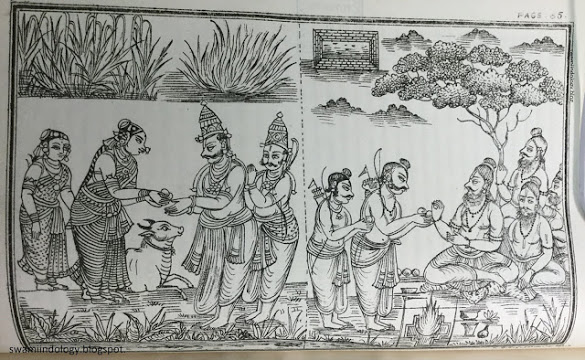 PAGE. 65.
swamiindology.blogspot